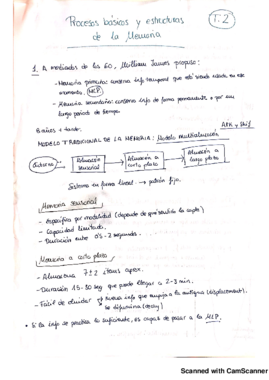 Procesos básicos y estructuras
de la Memoria
T.2
1. A mediados de los 60, William James propuso:
- Memoria primaria: conserva info temporal que está siendo usada, en ese
momento. MCP.
- Memoria secundaria: conserva info de forma permanente o por un
largo periodo de tiempo.
8 años + tarde:
MODELO TRADICIONAL DE LA MEMORIA: Modelo multialmacén
Atk y Shif
Entorno
Almacén
sensorial
Almacén a
corto plazo
Almacén a
largo plazo
Sistema en forma lineal → patrón fijo.
Memoria sensorial
- Específica por modalidad (depende de qué sentido la capte)
- Capacidad limitada.
- Duración entre 0'5-2 segundos.
Memoria a corto plazo
- Almacena 7±2 ítems aprox.
- Duración 15-30 seg que puede llegar a 2-3 min.
- Fácil de olvidar
Nueva info que empuja a la antigua (displacement).
Se difumina (decay)
• Si la info se practica lo suficiente, es capaz de pasar a la MLP.
Scanned with CamScanner